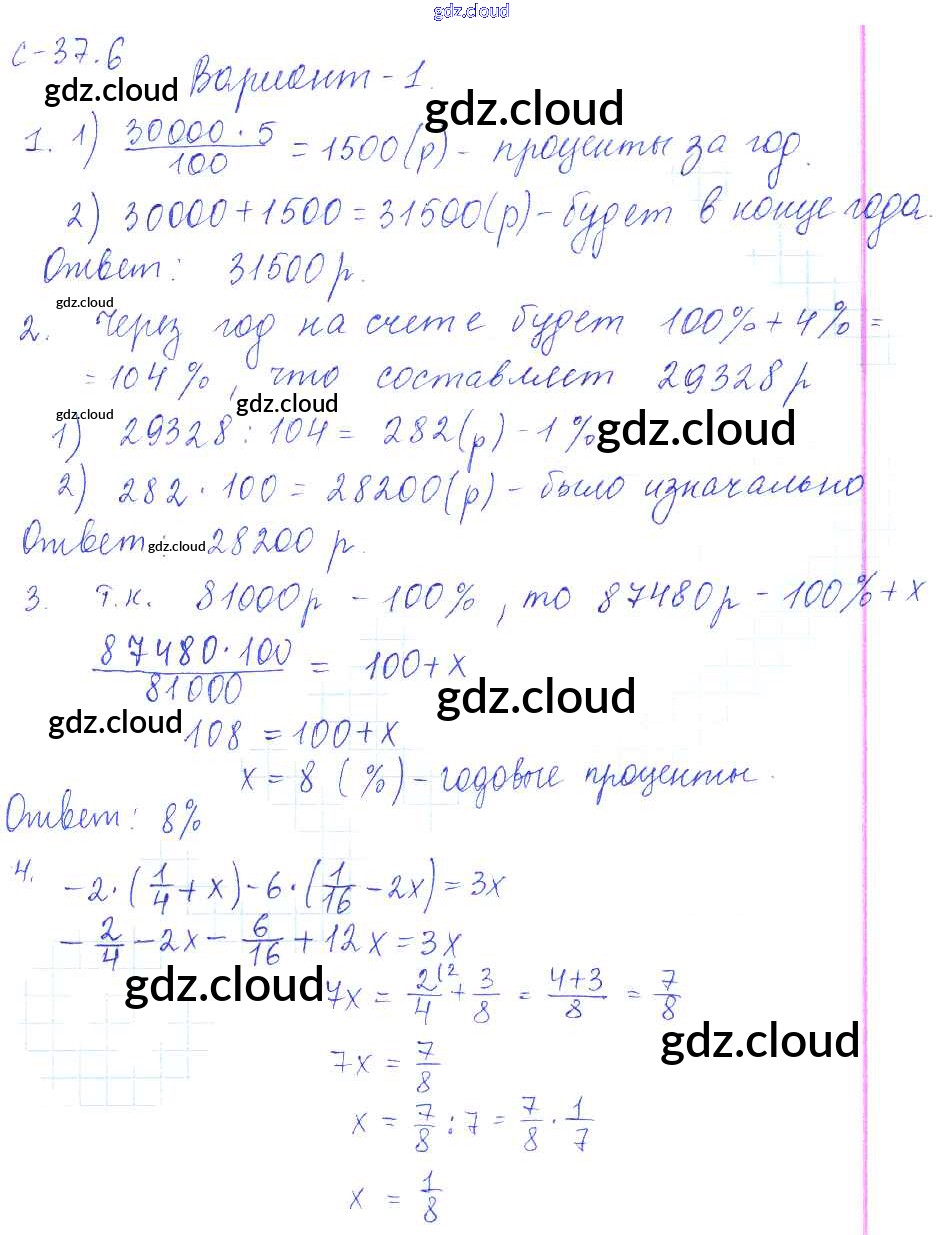 gdz.cloud
С-37.6
gdz.cloud Вариант-1.
gdz.cloud
1. 1) 30000·5/100 = 1500(р) - проценты за год.
2) 30000+1500=31500(р)-будет в конце года.
Ответ: 31500р.
gdz.cloud
2. Через год на счете будет 100%+4%=
=104%, что составляет 29328р
gdz.cloud gdz.cloud
1) 29328:104= 282(р)-1% gdz.cloud
2) 282·100=28200(р)-было изначально
Ответ: gdz.cloud 28200 р.
3. т.к. 81000р - 100%, то 87480р-100%+x
87480·100/81000 = 100+x
gdz.cloud
gdz.cloud 108 = 100+x
x = 8 (%)-годовые проценты.
Ответ: 8%
4. -2·(1/4+x)-6·(1/16-2x)=3x
-2/4-2x-6/16+12x=3x
gdz.cloud 7x = 2(2/4+3/8 = 4+3/8 = 7/8
gdz.cloud
7x = 7/8
x = 7/8:7=7/8·1/7
x = 1/8